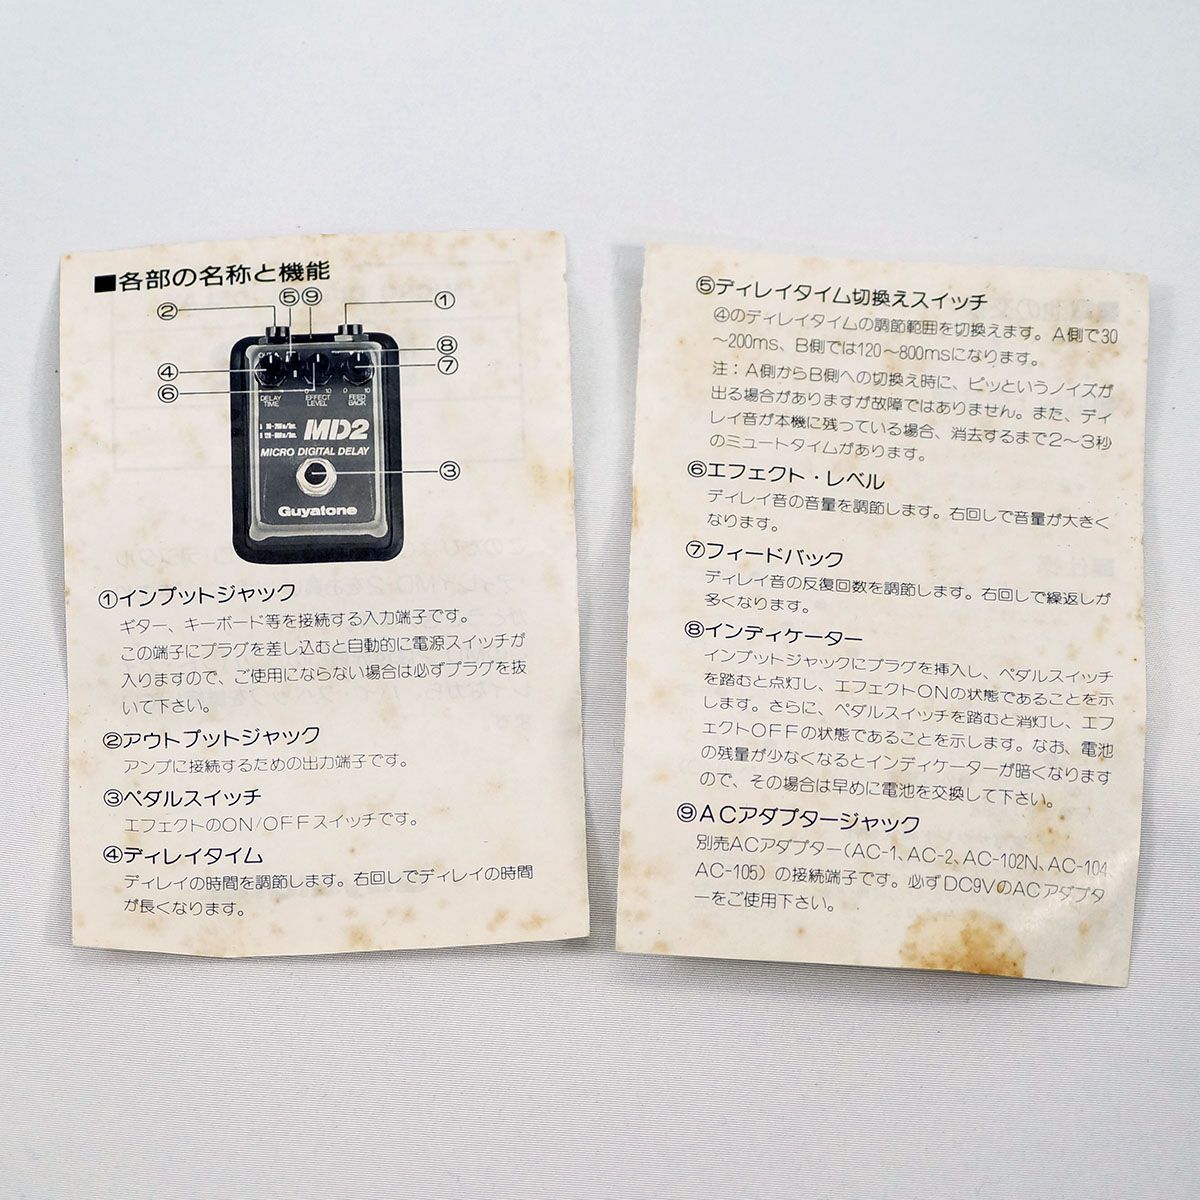 ■各部の名称と機能
②
⑤⑨
①
④
⑥
⑧
⑦
③
0
10
0
10
DELAY
TIME
EFFECT
LEVEL
FEED
BACK
MD2
MICRO DIGITAL DELAY
Guyatone
①インプットジャック
ギター、キーボード等を接続する入力端子です。
この端子にプラグを差し込むと自動的に電源スイッチが
入りますので、ご使用にならない場合は必ずプラグを抜
いて下さい。
②アウトプットジャック
アンプに接続するための出力端子です。
③ペダルスイッチ
エフェクトのON/OFFスイッチです。
④ディレイタイム
ディレイの時間を調節します。右回しでディレイの時間
が長くなります。
⑤ディレイタイム切換えスイッチ
④のディレイタイムの調節範囲を切換えます。A側で30
～200ms、B側では120～800msになります。
注：A側からB側への切換え時に、ピッというノイズが
出る場合がありますが故障ではありません。また、ディ
レイ音が本機に残っている場合、消去するまで2～3秒
のミュートタイムがあります。
⑥エフェクト・レベル
ディレイ音の音量を調節します。右回しで音量が大きく
なります。
⑦フィードバック
ディレイ音の反復回数を調節します。右回しで繰返しが
多くなります。
⑧インディケーター
インプットジャックにプラグを挿入し、ペダルスイッチ
を踏むと点灯し、エフェクトONの状態であることを示
します。さらに、ペダルスイッチを踏むと消灯し、エフ
ェクトOFFの状態であることを示します。なお、電池
の残量が少なくなるとインディケーターが暗くなります
ので、その場合は早めに電池を交換して下さい。
⑨ACアダプタージャック
別売ACアダプター(AC-1、AC-2、AC-102N、AC-104
AC-105)の接続端子です。必ずDC9VのACアダプタ
ーをご使用下さい。